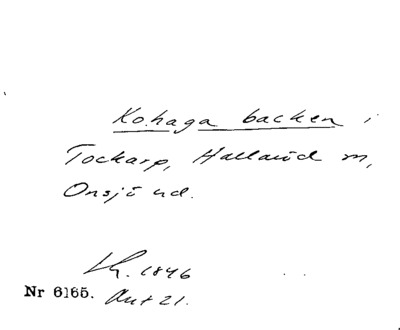 Kohaga backen i
Tockarp, Hallaröd m,
Onsjö hd.
Lh. 1846
Nr 6165. Ant 21.